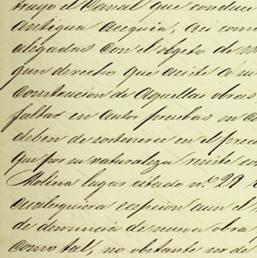 truyo el Canal que conduce
antigua acequia, asi como
alegadas con el objeto de
gun derecho que asiste a
contrucion de aquellas obras
faltar en autos pruebas en
deben de sostenerse en el
que por su naturaleza reviste
Molina lugar citado nº 29
cualesquiera escepcion aun el
de denuncia de nueva obra
como tal, no obstante ser de